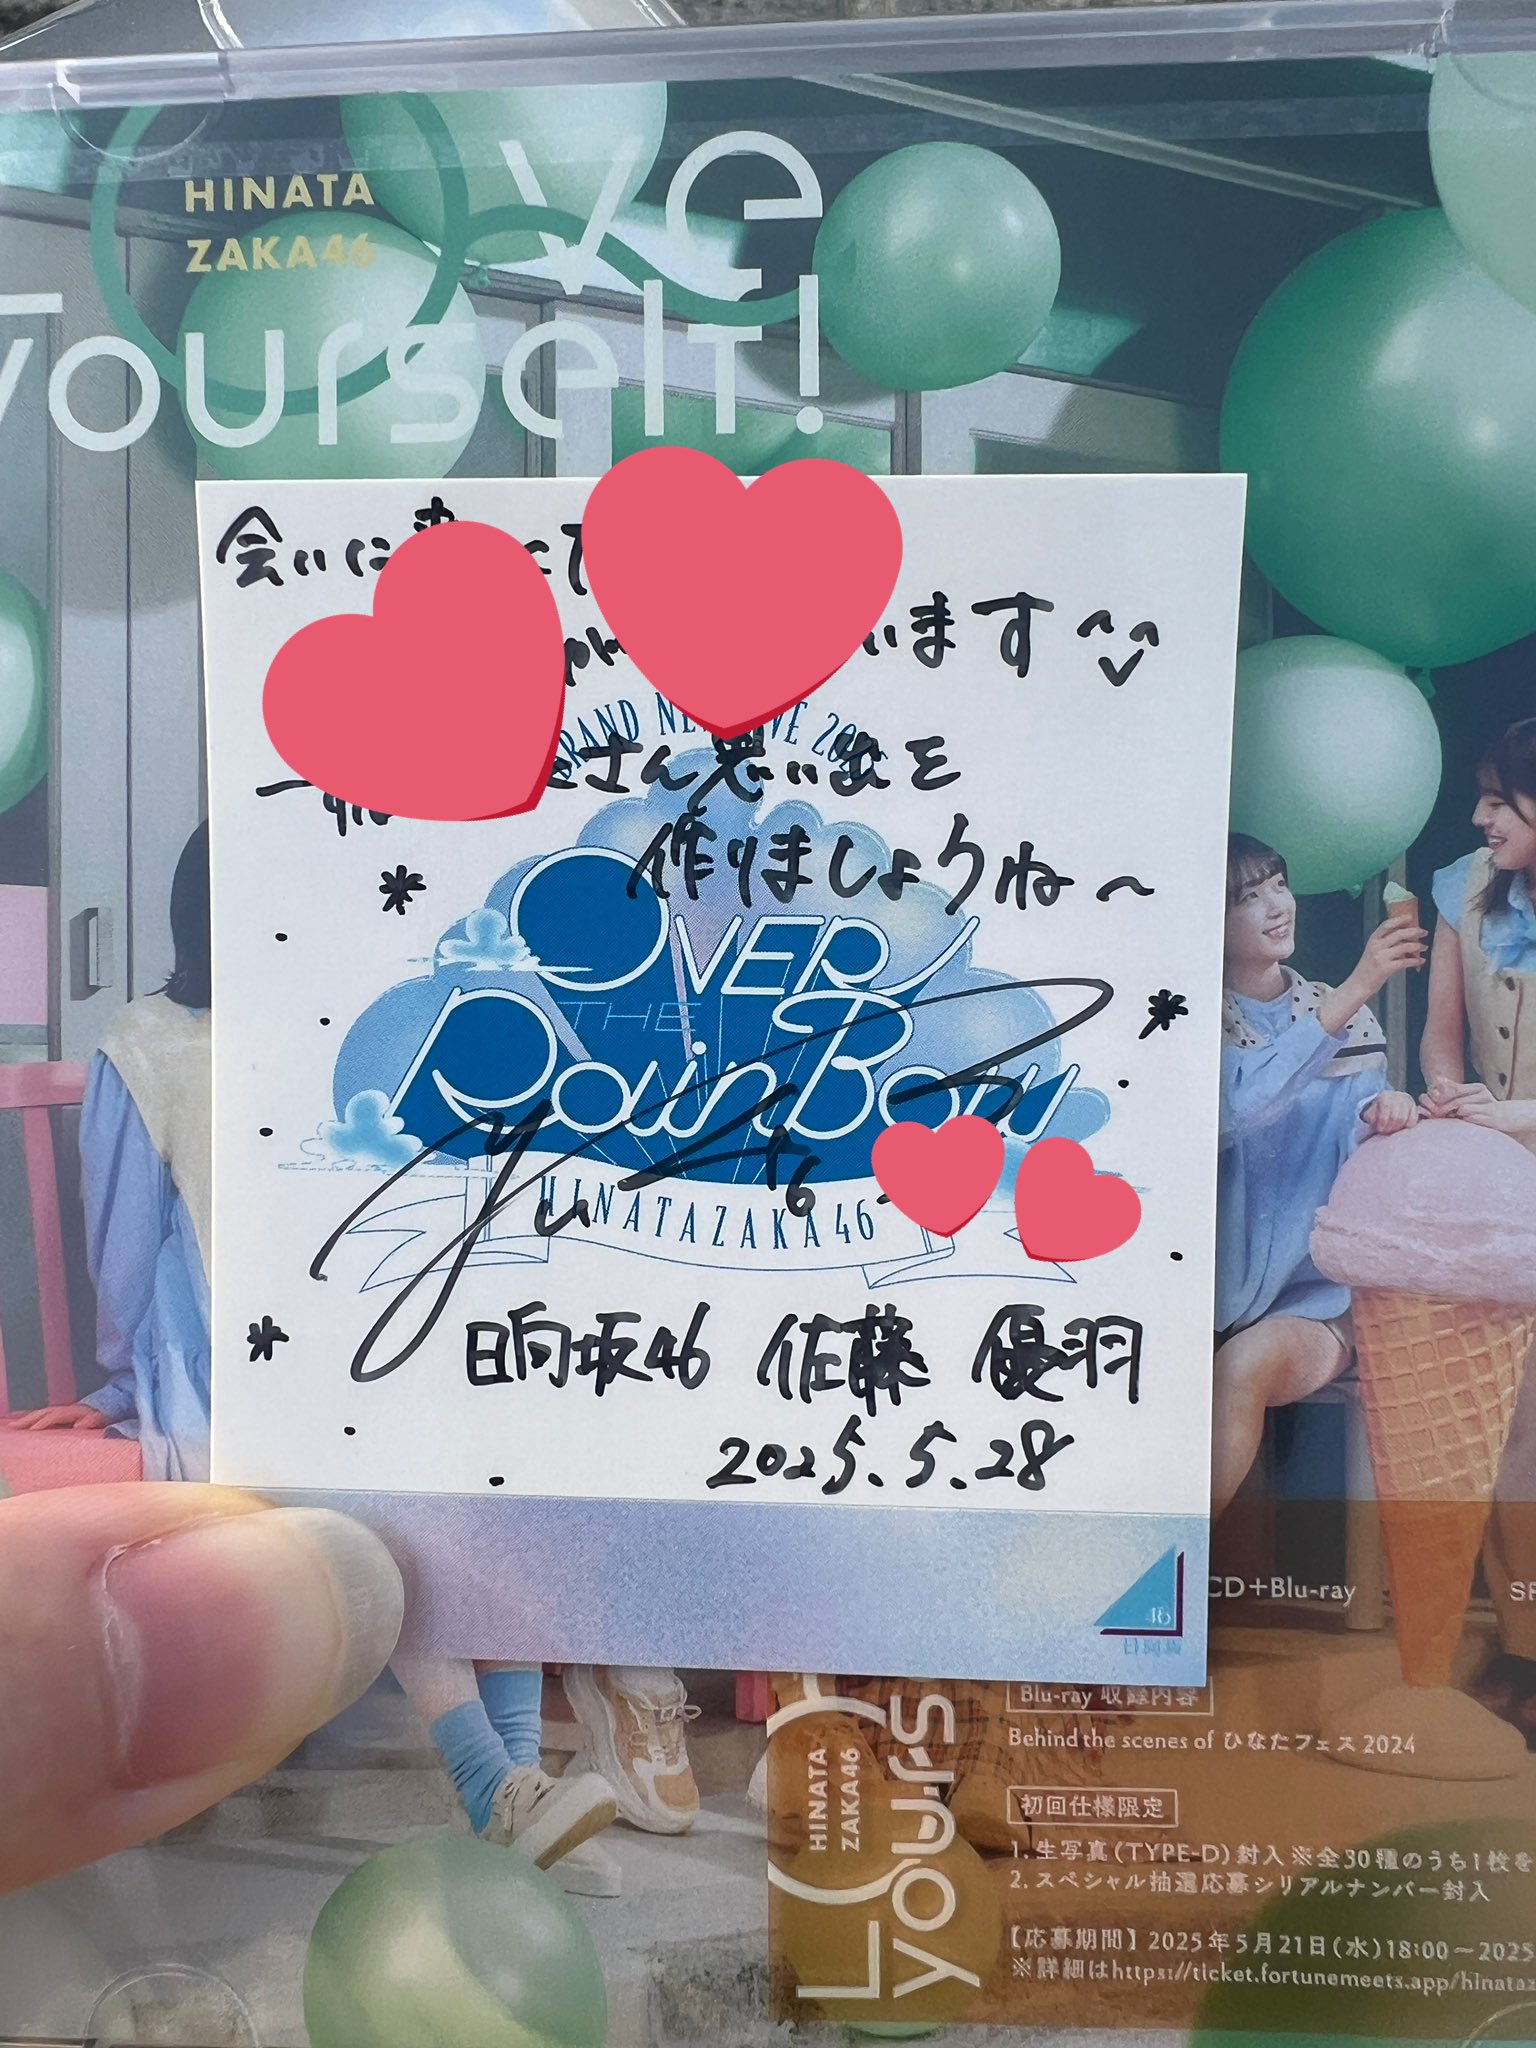 HINATA
ZAKA46
ve
yourself!
会いに
います
BRAND NE VE 202
さん思い出を
作りましょうね〜
OVER
THE
RAINBOW
HINATAZAKA46
日向坂46 佐藤 優羽
2025.5.28
46
日向坂
CD+Blu-ray
Blu-ray 収録内容
Behind the scenes of ひなたフェス2024
初回仕様限定
1. 生写真(TYPE-D)封入※全30種のうち1枚を
2. スペシャル抽選応募シリアルナンバー封入
【応募期間】2025年5月21日(水)18:00〜2025
※詳細はhttps://ticket.fortunemeets.app/hinataz
HINATA
ZAKA46
yours